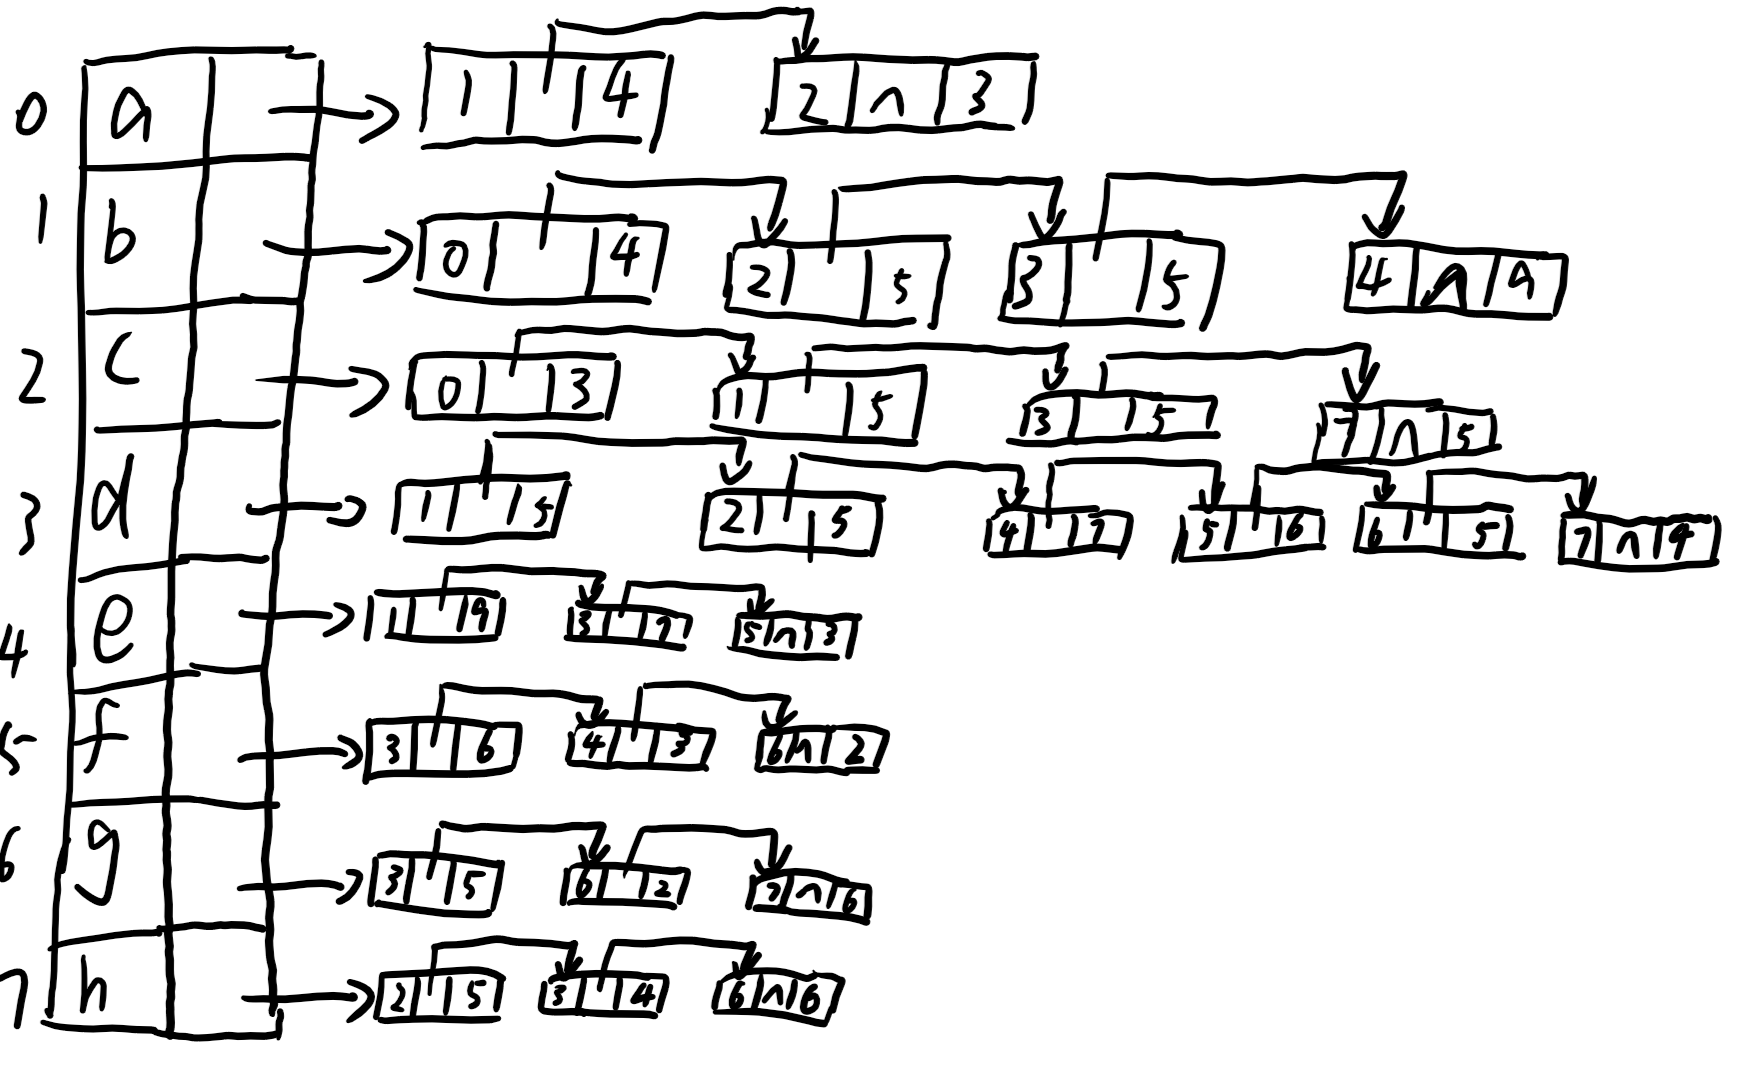 0 a 1 4 2 ∧ 3
1 b 0 4 2 5 3 5 4 ∧ 9
2 c 0 3 1 5 3 5 7 ∧ 5
3 d 1 5 2 5 4 7 5 6 6 5 7 ∧ 4
4 e 1 9 3 7 5 ∧ 3
5 f 3 6 4 3 6 ∧ 2
6 g 3 5 6 2 7 ∧ 6
7 h 2 5 3 4 6 ∧ 6